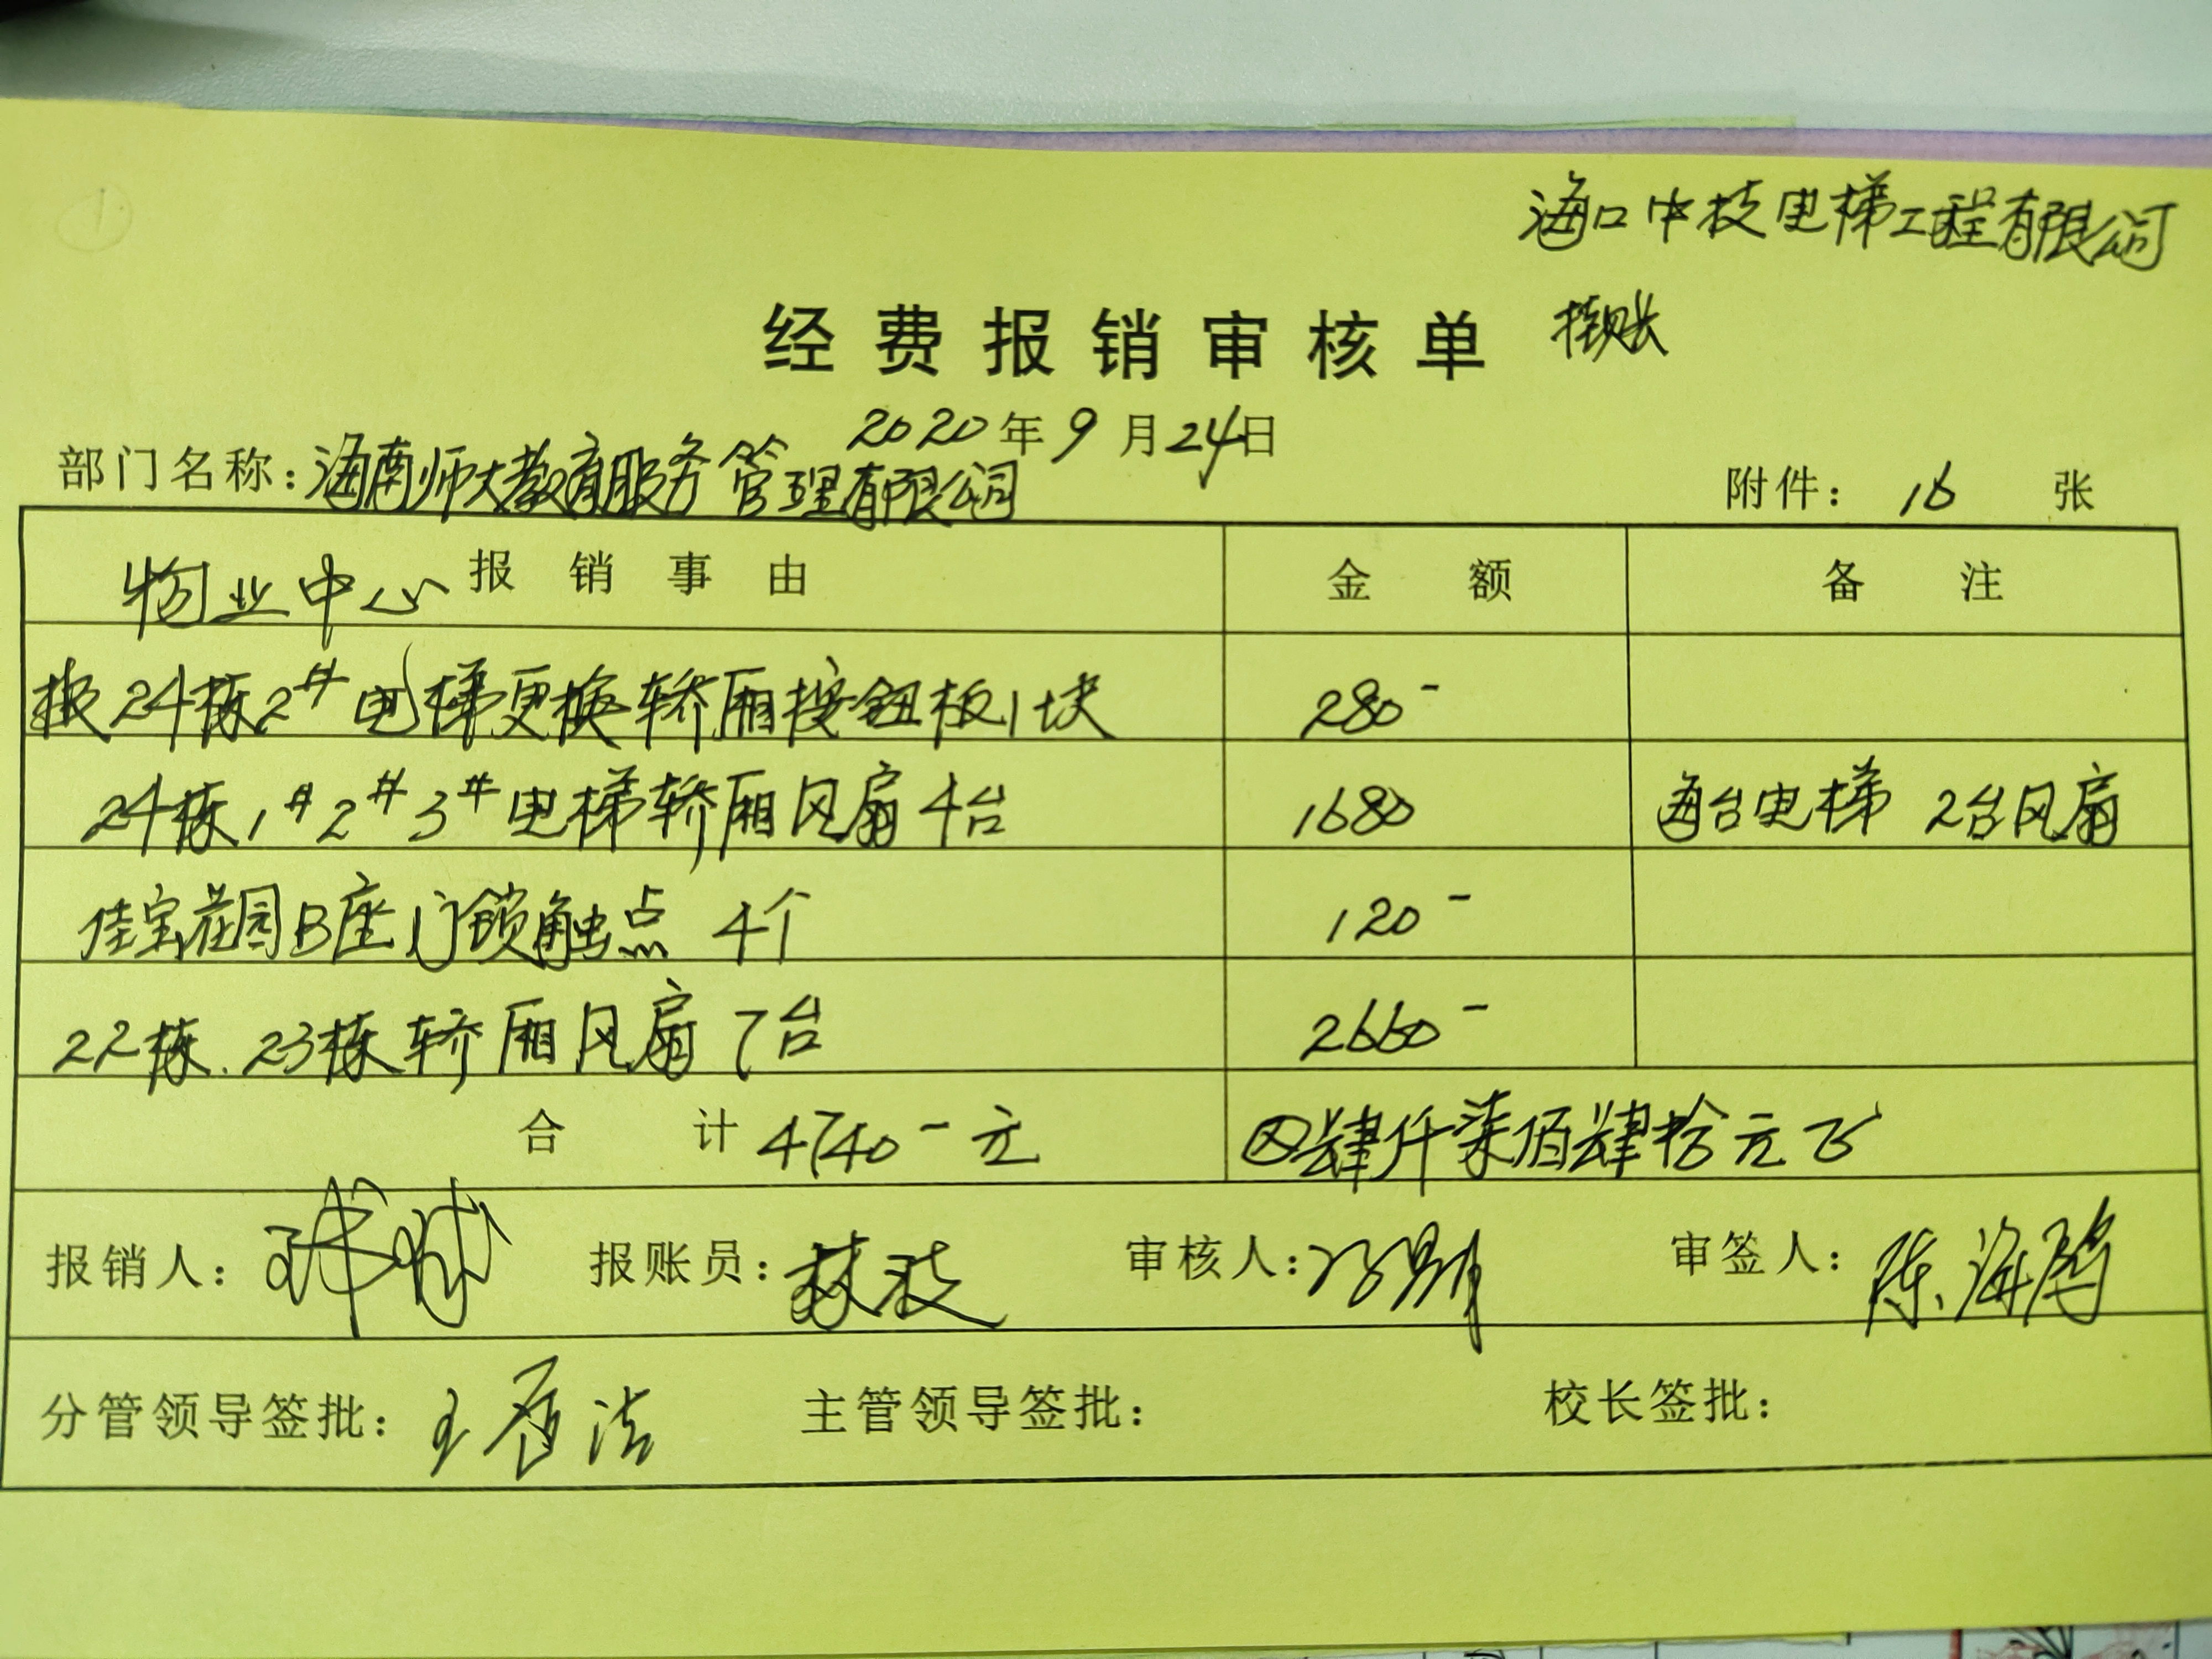 海口中技电梯工程有限公司
经费报销审核单 挂账
2020年9月24日
部门名称：海南师大教育服务管理有限公司 附件：16 张
物业中心 报销事由 金额 备注
报24栋2#电梯更换轿厢按钮板1块 280-
24栋1#2#3#电梯轿厢风扇4台 1680 每台电梯 2台风扇
佳宝花园B座门锁触点 4个 120-
22栋.23栋轿厢风扇7台 2660-
合计 4740-元 ⊗肆仟柒佰肆拾元正
报销人： 报账员： 审核人： 审签人：陈海鸿
分管领导签批： 主管领导签批： 校长签批：